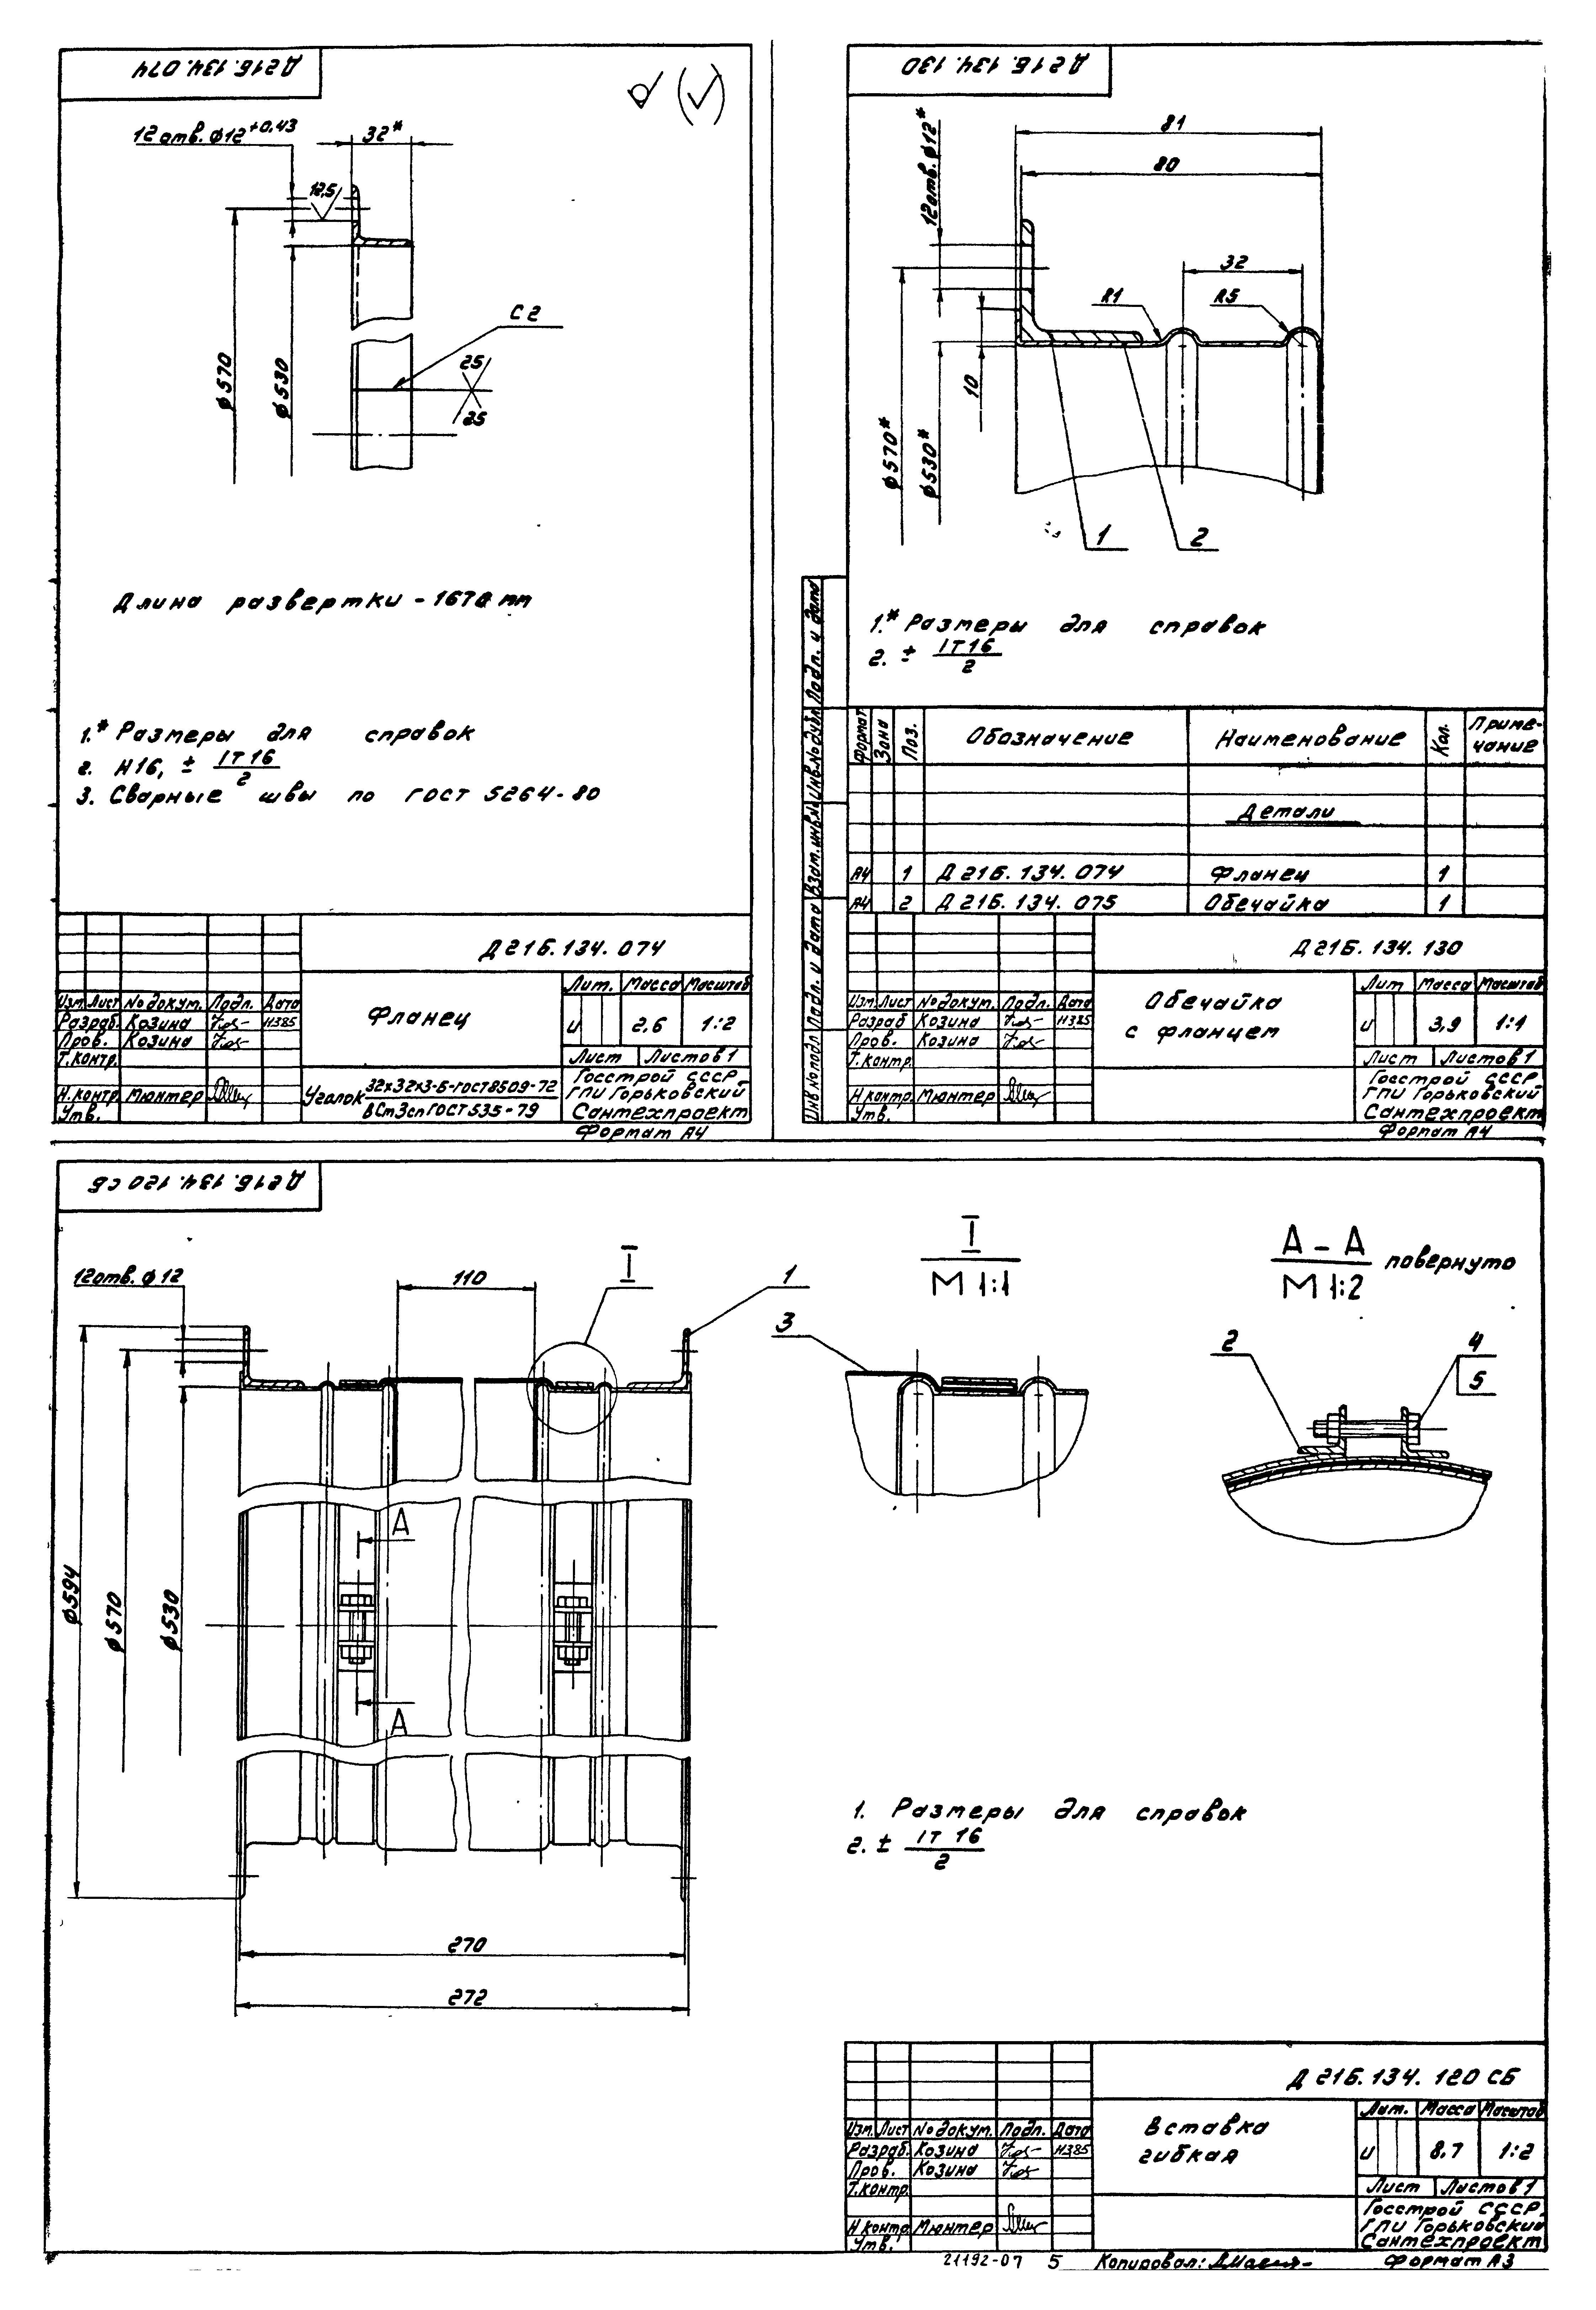 Д21Б.134.074
12 отв. ϕ12 +0,43
32*
12,5
ϕ570
ϕ530
С2
25
25
Длина развертки - 1670 мм
1.* Размеры для справок
2. Н16, ± IT16/2
3. Сварные швы по ГОСТ 5264-80
Д21Б.134.074
Изм. Лист № докум. Подп. Дата
Разраб. Козина 11.85
Пров. Козина
Т.контр.
Н.контр. Мюнтер
Утв.
Фланец
Лит. Масса Масштаб
И 2,6 1:2
Лист Листов 1
Уголок 32х32х3-Б-ГОСТ 8509-72
ВСт3сп ГОСТ 535-79
Госстрой СССР
ГПИ Горьковский
Сантехпроект
Формат А4
Д21Б.134.130
81
80
12 отв. ϕ12*
32
R1
R5
10
ϕ570*
ϕ530*
1
2
1.* Размеры для справок
2. ± IT16/2
Формат Зона Поз. Обозначение Наименование Кол. Примечание
Детали
А4 1 Д21Б.134.074 Фланец 1
А4 2 Д21Б.134.075 Обечайка 1
Инв.№ подл. Подп. и дата Взам.инв.№ Инв.№ дубл. Подп. и дата
Д21Б.134.130
Изм. Лист № докум. Подп. Дата
Разраб. Козина 11.85
Пров. Козина
Т.контр.
Н.контр. Мюнтер
Утв.
Обечайка
с фланцем
Лит. Масса Масштаб
И 3,9 1:1
Лист Листов 1
Госстрой СССР
ГПИ Горьковский
Сантехпроект
Формат А4
Д21Б.134.120 СБ
12 отв. ϕ12
110
I
1
ϕ594
ϕ570
ϕ530
А
А
270
272
I
М 1:1
3
А - А повернуто
М 1:2
2
4
5
1. Размеры для справок
2. ± IT 16/2
Д21Б.134.120 СБ
Изм. Лист № докум. Подп. Дата
Разраб. Козина 11.85
Пров. Козина
Т.контр.
Н.контр. Мюнтер
Утв.
Вставка
гибкая
Лит. Масса Масштаб
И 8,7 1:2
Лист Листов 1
Госстрой СССР
ГПИ Горьковский
Сантехпроект
21192-07 5 Копировал: Формат А3